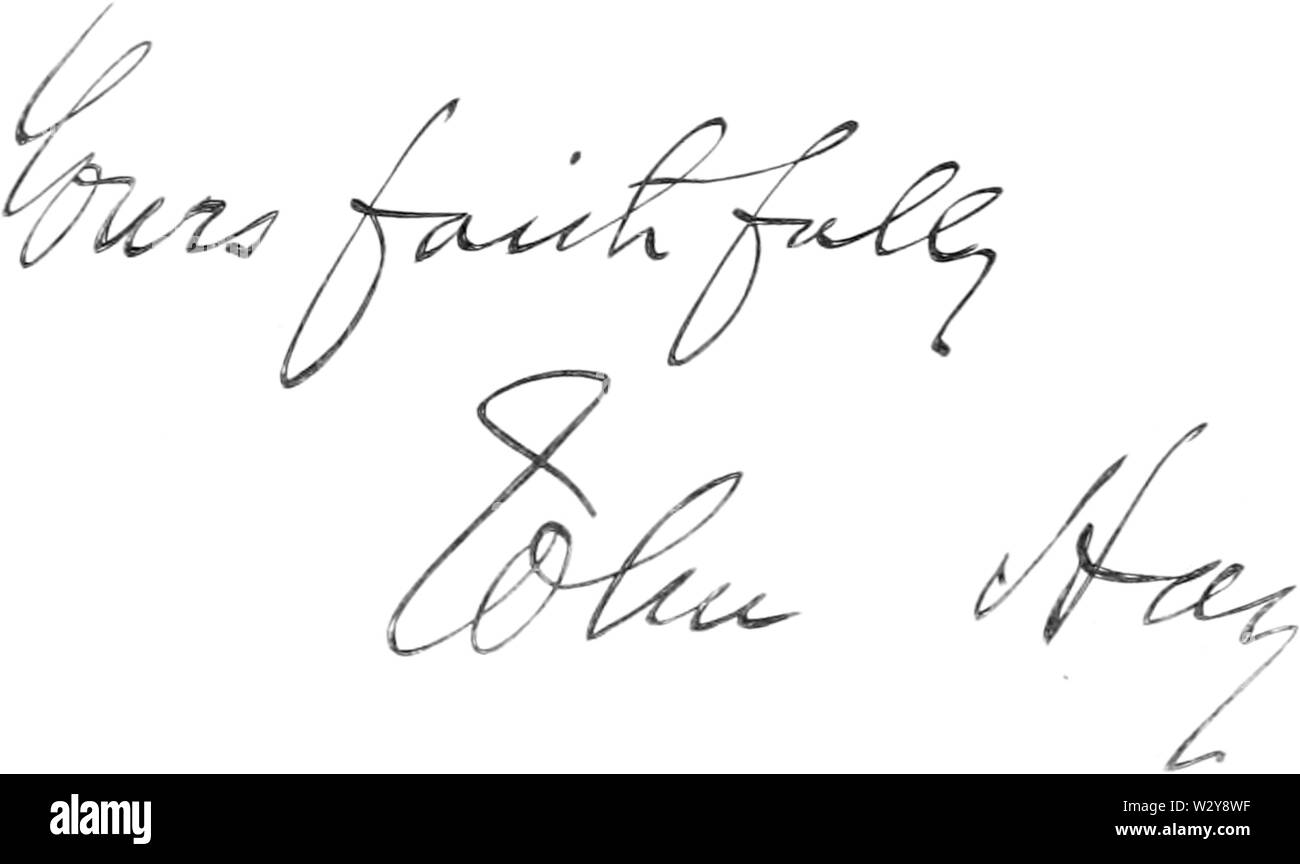 Yours faithfully
John Hay
alamy
Image ID: W2Y8WF
www.alamy.com